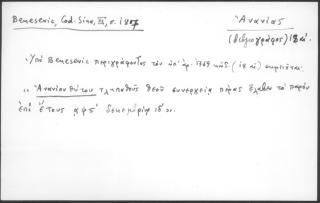 Benesevic, Cod. Sina, III, σ. 1807
Ἀνανίας
(βιβλιογράφος) 18 αἰ.
Ὑπὸ Benesevic περιγράφοντος τὸν ὑπ' ἀρ. 1769 κώδ. (18 αἰ) σημειοῦται.
" Ἀνανίου θύτου θεοῦ συνεργείᾳ πέρας ἔλαβεν τὸ παρὸν
ἐπὶ ἔτους δεκεμβρίῳ